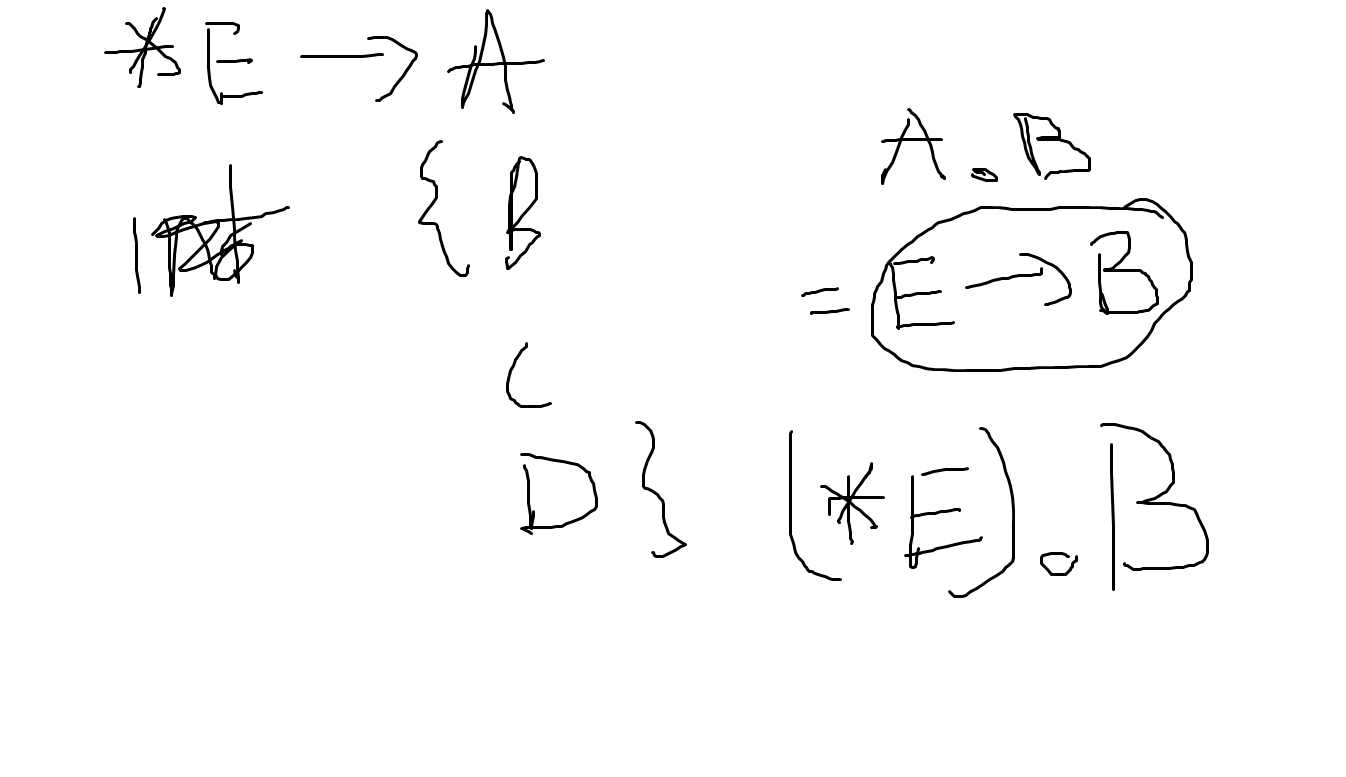 *E → A
{ B
C
D }
A.B
= E → B
(*E).B